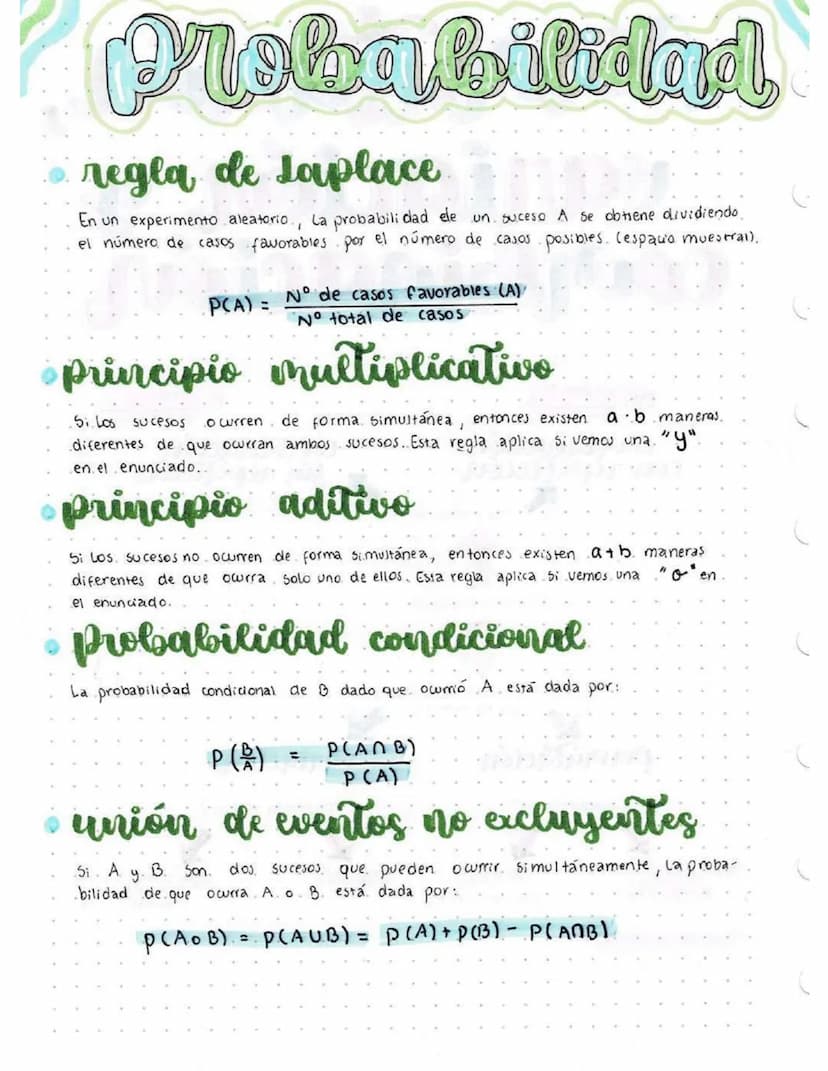 probabilidad
regla de Laplace
En un experimento aleatorio, La probabilidad de un suceso A se obtiene dividiendo
el número de casos favorables por el número de casos posibles (espacio muestral).
P(A) = Nº de casos favorables (A) / Nº total de casos
principio multiplicativo
Si Los sucesos ocurren de forma simultánea, entonces existen a·b maneras
diferentes de que ocurran ambos sucesos. Esta regla aplica si vemos una "y"
en el enunciado.
principio aditivo
Si Los sucesos no ocurren de forma simultánea, entonces existen a+b maneras
diferentes de que ocurra solo uno de ellos. Esta regla aplica si vemos una "o" en
el enunciado.
probabilidad condicional
La probabilidad condicional de B dado que ocurrió A está dada por:
P(B/A) = P(A∩B) / P(A)
unión de eventos no excluyentes
Si A y B son dos sucesos que pueden ocurrir simultáneamente, La proba-
bilidad de que ocurra A o B está dada por:
P(A o B) = P(A∪B) = P(A)+P(B) - P(A∩B)